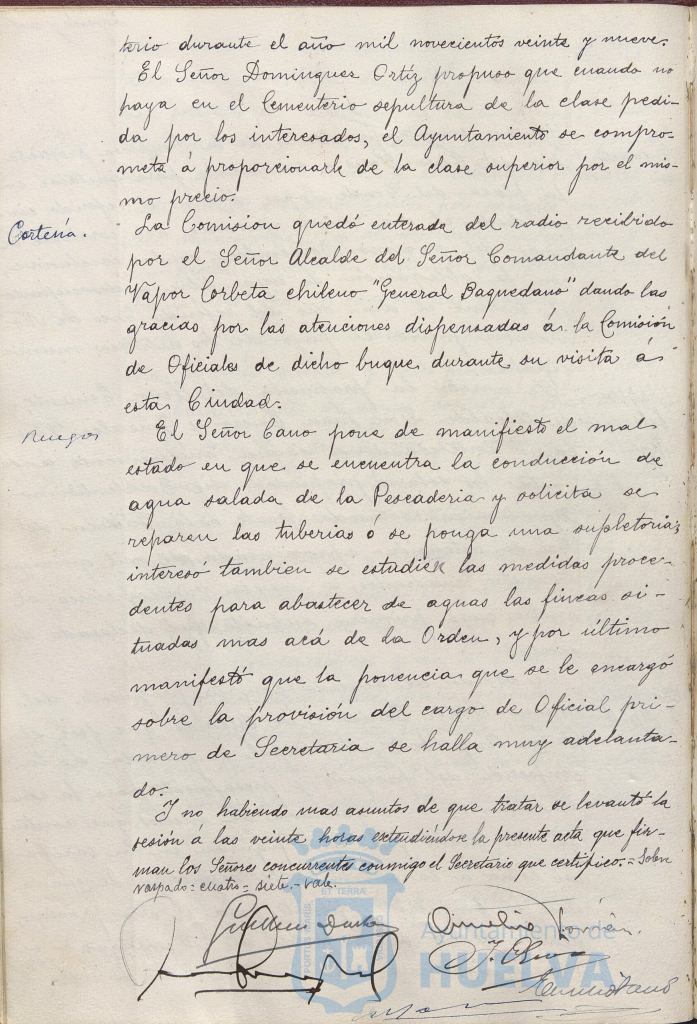 terio durante el año mil novecientos veinte y nueve.
El Señor Dominguez Ortíz propuso que cuando no
haya en el Cementerio sepultura de la clase pedi-
da por los interesados, el Ayuntamiento se compro-
meta á proporcionarle de la clase superior por el mis-
mo precio.
Cortesía.
La Comision quedó enterada del radio recibido
por el Señor Alcalde del Señor Comandante del
Vapor Corbeta chileno "General Baquedano" dando las
gracias por las atenciones dispensadas á la Comisión
de Oficiales de dicho buque durante su visita á
esta Ciudad.
Ruegos
El Señor Cano pone de manifiesto el mal
estado en que se encuentra la conducción de
agua salada de la Pescaderia y solicita se
reparen las tuberias ó se ponga una supletoria;
interesó tambien se estudien las medidas proce-
dentes para abastecer de aguas las fincas si-
tuadas mas acá de la Orden, y por último
manifestó que la ponencia que se le encargó
sobre la provisión del cargo de Oficial pri-
mero de Secretaria se halla muy adelanta-
do.
Y no habiendo mas asuntos de que tratar se levantó la
sesión á las veinte horas extendiéndose la presente acta que fir-
man los Señores concurrentes conmigo el Secretario que certifico.= Sobre
raspado= cuatro= siete.- vale.
Ayuntamiento de
HUELVA